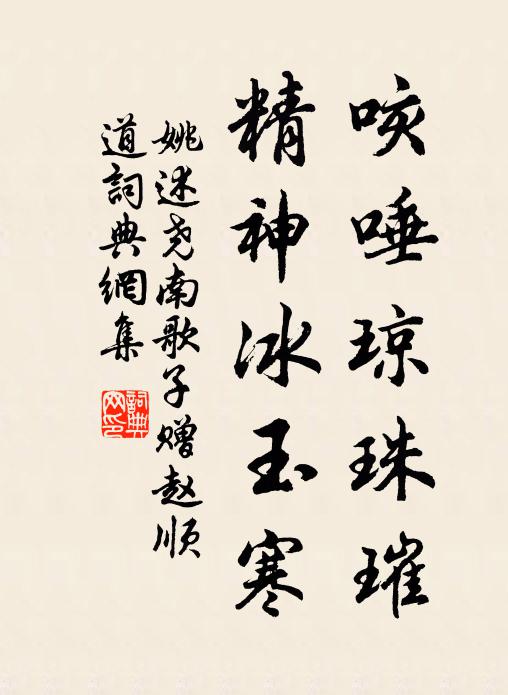 咳唾琼珠璀
精神冰玉寒
姚述尧南歌子赠赵顺
道詞典網集
詞典
网印